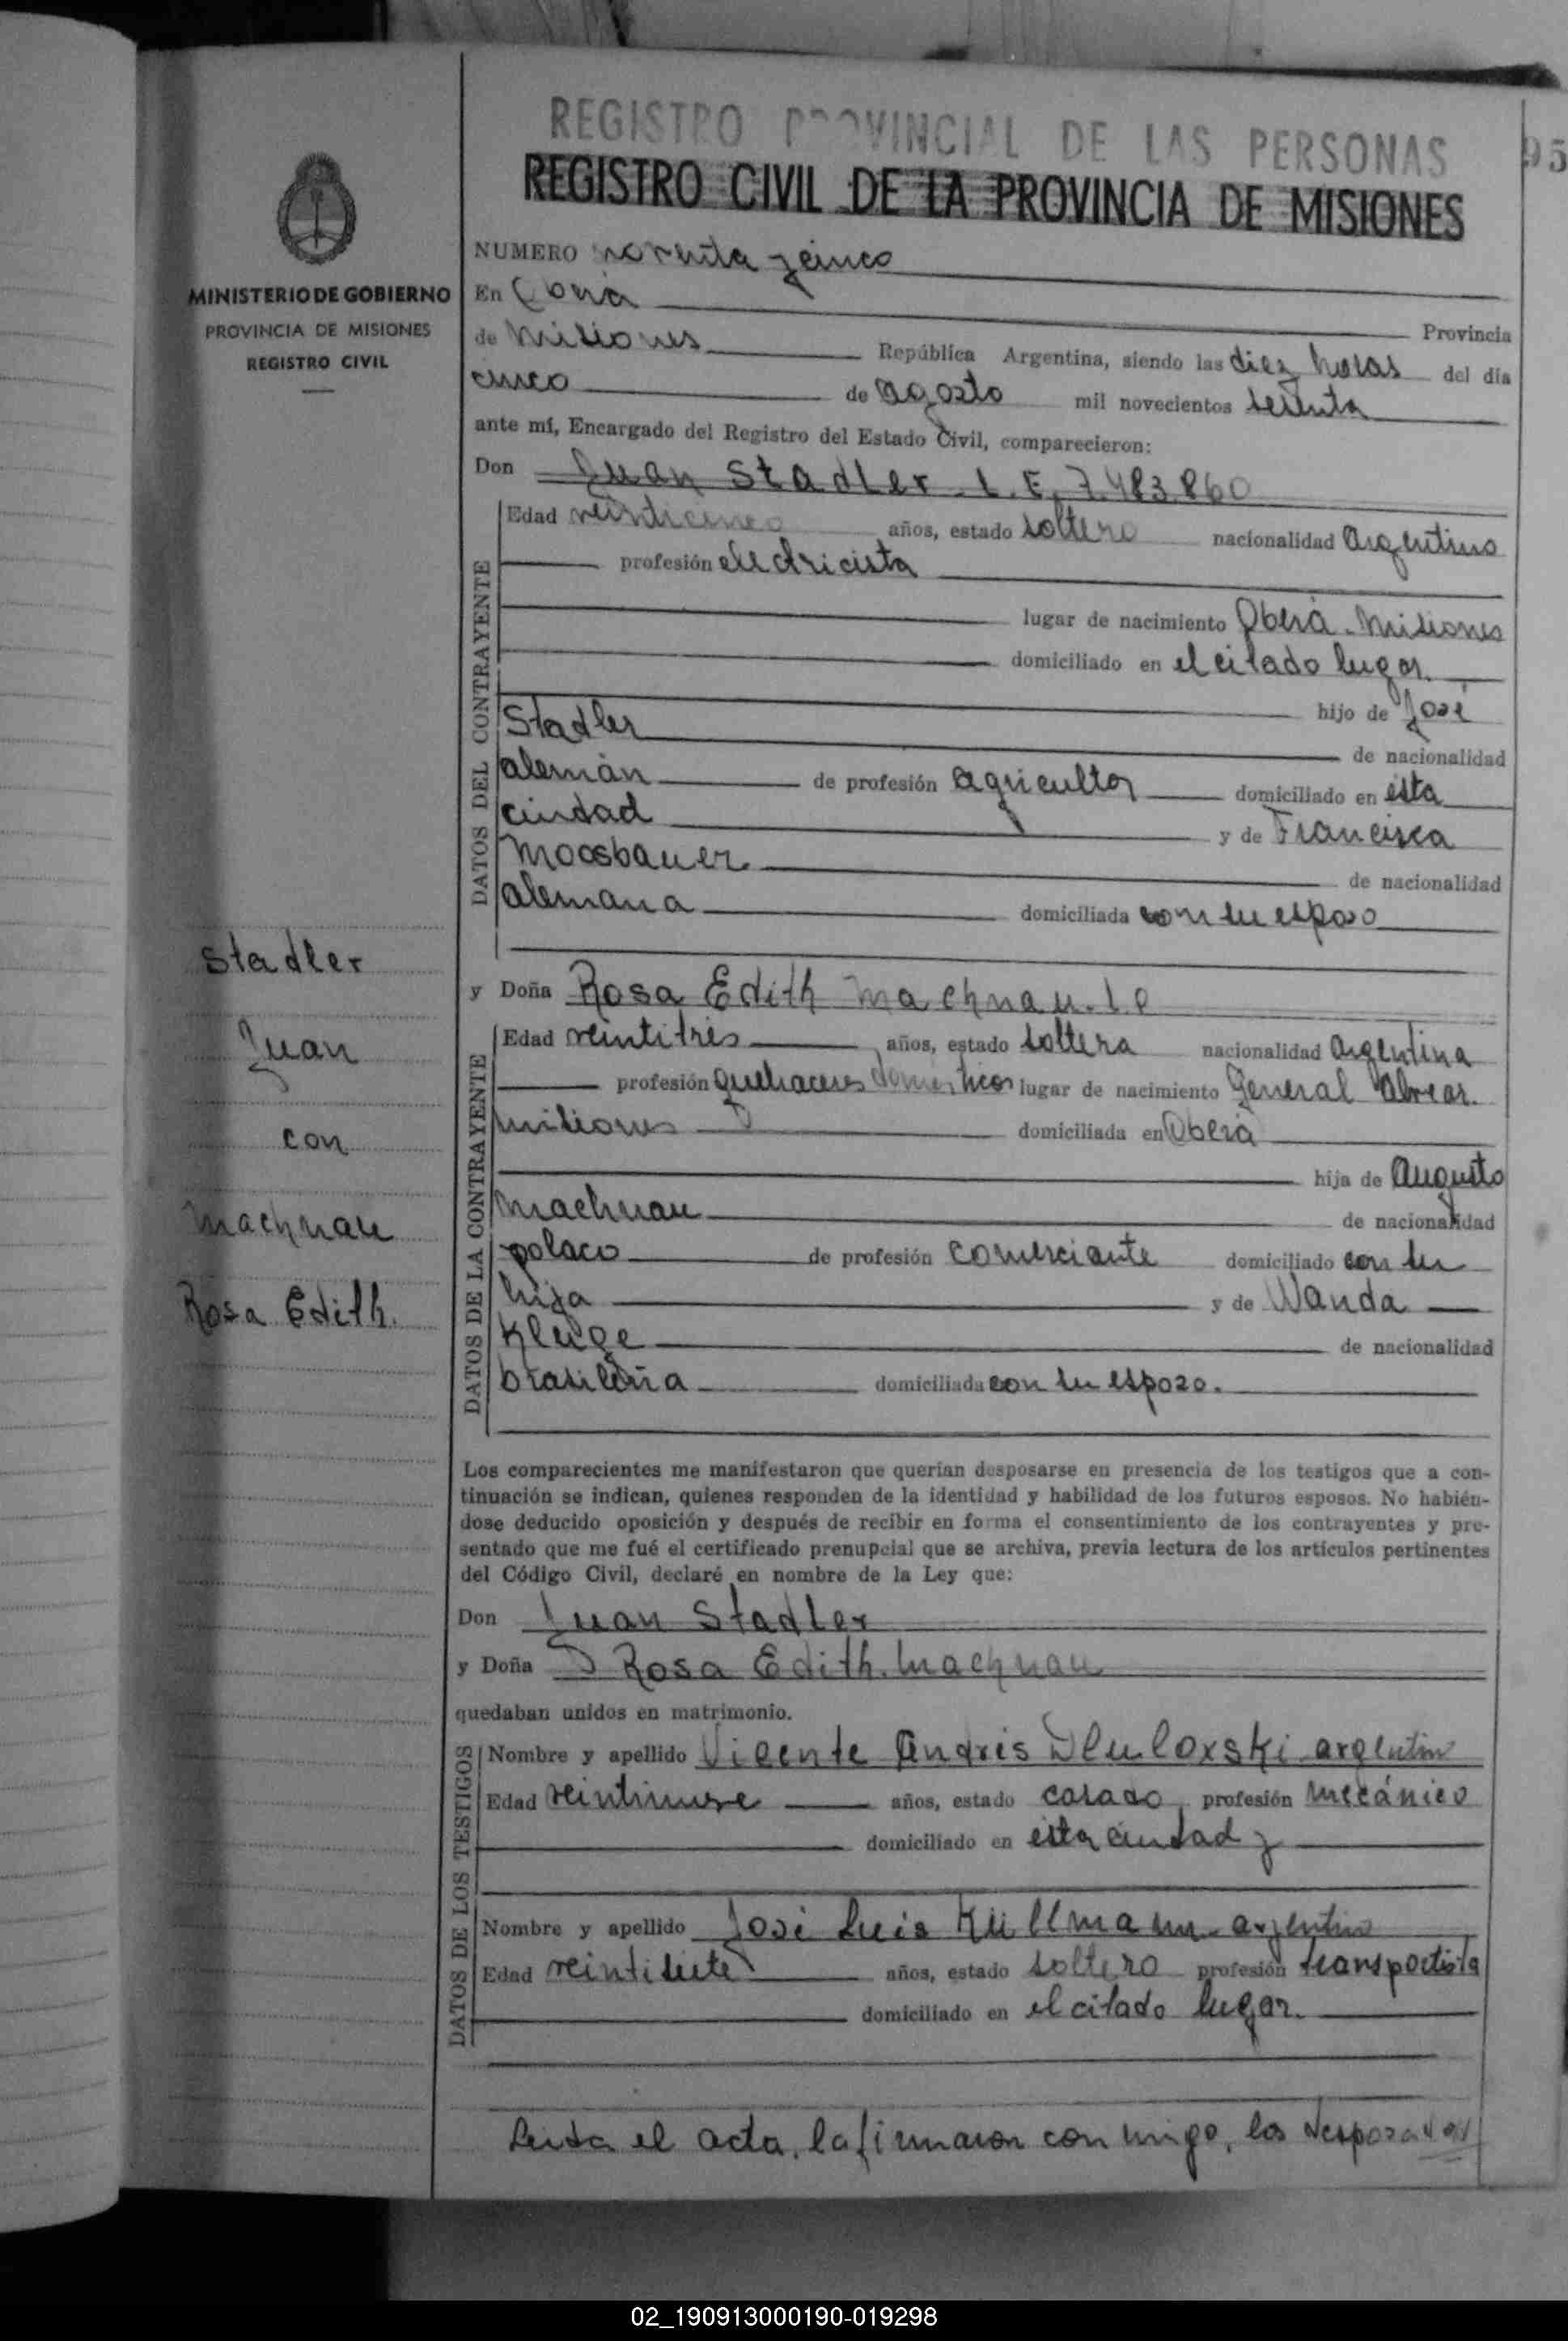 REGISTRO PROVINCIAL DE LAS PERSONAS
95
REGISTRO CIVIL DE LA PROVINCIA DE MISIONES
MINISTERIO DE GOBIERNO
PROVINCIA DE MISIONES
REGISTRO CIVIL
NUMERO noventa y cinco
En
Provincia
de Misiones República Argentina, siendo las diez horas del día
cinco de agosto mil novecientos
ante mí, Encargado del Registro del Estado Civil, comparecieron:
Don Juan Stadler L.E. 7.483.860
DATOS DEL CONTRAYENTE
Edad veinticinco años, estado soltero nacionalidad argentino
profesión electricista
lugar de nacimiento Oberá. Misiones
domiciliado en el citado lugar.
hijo de José
Stadler
de nacionalidad
alemán de profesión agricultor domiciliado en esta
ciudad y de Francisca
Moosbauer
de nacionalidad
alemana domiciliada con su esposo
y Doña Rosa Edith Machnau.
DATOS DE LA CONTRAYENTE
Edad veintitrés años, estado soltera nacionalidad argentina
profesión quehaceres domésticos lugar de nacimiento General Alvear.
Misiones domiciliada en Oberá
hija de Augusto
Machnau
de nacionalidad
polaco de profesión comerciante domiciliado con su
hija y de Wanda
Kluge
de nacionalidad
brasileña domiciliada con su esposo.
Stadler
Juan
con
Machnau
Rosa Edith.
Los comparecientes me manifestaron que querían desposarse en presencia de los testigos que a con-
tinuación se indican, quienes responden de la identidad y habilidad de los futuros esposos. No habién-
dose deducido oposición y después de recibir en forma el consentimiento de los contrayentes y pre-
sentado que me fué el certificado prenupcial que se archiva, previa lectura de los artículos pertinentes
del Código Civil, declaré en nombre de la Ley que:
Don Juan Stadler
y Doña Rosa Edith. Machnau
quedaban unidos en matrimonio.
DATOS DE LOS TESTIGOS
Nombre y apellido Vicente Andrés argentino
Edad veintinueve años, estado casado profesión mecánico
domiciliado en esta ciudad y
Nombre y apellido José Luis Küllmann argentino
Edad veintisiete años, estado soltero profesión transportista
domiciliado en el citado lugar.
Leída el acta, la firmaron conmigo, los desposados
02_190913000190-019298